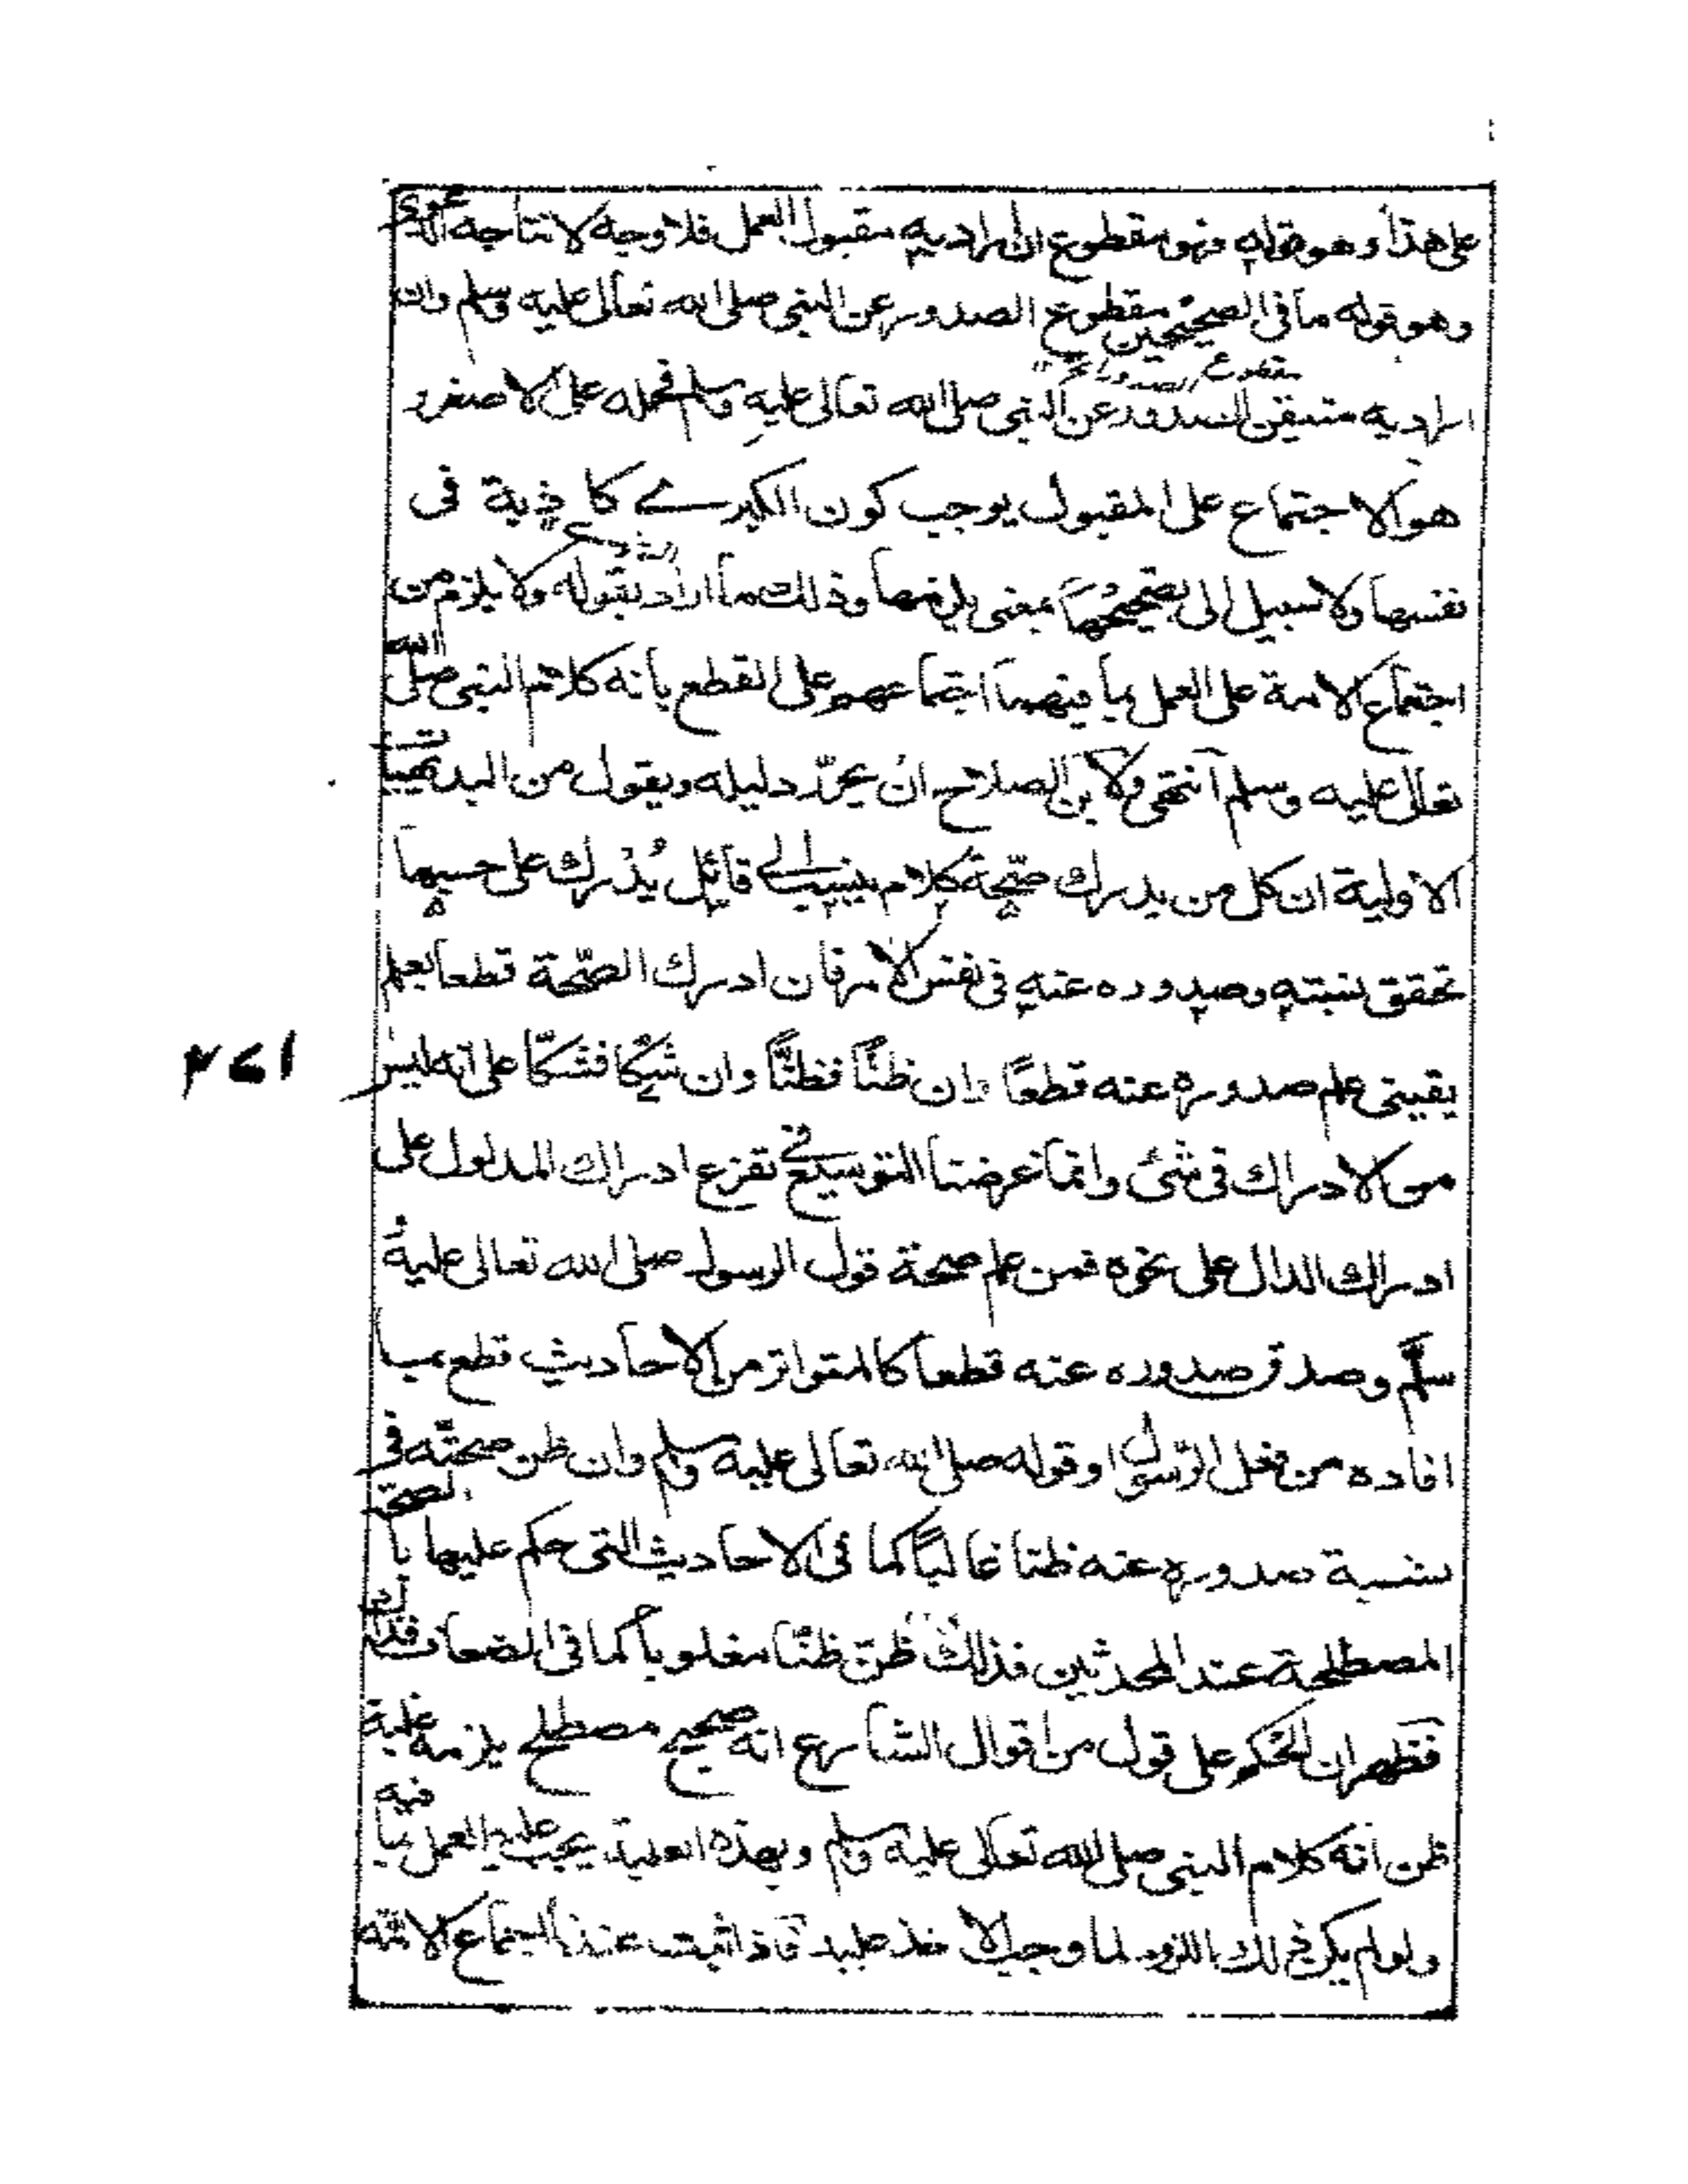 على هذا وهو قوله فهو مقطوع ان اراد به مقبول العمل فلا وجه لانتاجه المدعى
وهو قوله ما فى الصحيحين مقطوع الصدور عن النبى صلى الله تعالى عليه وسلم وان
اراد به متيقن الصدور عن النبى صلى الله تعالى عليه وسلم فحمله على الاصغر و
هو الاجتماع على المقبول يوجب كون الكبرے كاذبة فى
نفسها ولا سبيل الى تصحيحها بمعنى يلزمها وذلك ما اراد الشيخ بقوله ولا يلزم من
اجتماع الامة على العمل بما فيهما اجتماعهم على القطع بانه كلام النبى صلى الله
تعالى عليه وسلم انتهى ولابن الصلاح ان يحرّر دليله ويقول من البديهيات
الاولية ان كل من يدرك صحّة كلام ينسب الى قائل يُدْرك على حسبها
تحقق نسبته وصدوره عنه فى نفس الامر فان ادرك الصّحة قطعا بعلم
يقينى علم صدوره عنه قطعًا وان ظنًّا فظنًّا وان شكًّا فشكًّا على انه ليس
۲۷۱
من الادراك فى شئ وانما غرضنا التوسيع فى تفرع ادراك المدلول على
ادراك الدال على نحوه فمن علم صحة قول الرسول صلى الله تعالى عليه و
سلّم وصدق صدوره عنه قطعا كالمتواتر من الاحاديث قطع بما
افاده من فعل الرّسول او قوله صلى الله تعالى عليه وسلم وان ظن صحتّه فى
نسبة صدوره عنه ظنا غالبًا كما فى الاحاديث التى حكم عليها بالصحّة
المصطلحة عند المحدثين فذلك ظنّ ظنًّا مغلوبا كما فى الضعاف فذلك
فظهر ان الحكم على قول من اقوال الشارع انه صحيح مصطلح يلزمه غلبة
ظن انه كلام النبى صلى الله تعالى عليه وسلم وبهذه الغلبة يجب عليه العمل بما فيه
ولو لم يكن ذلك اللزوم لما وجب الاخذ عليه فاذا ثبت عندنا اجتماع الامّة